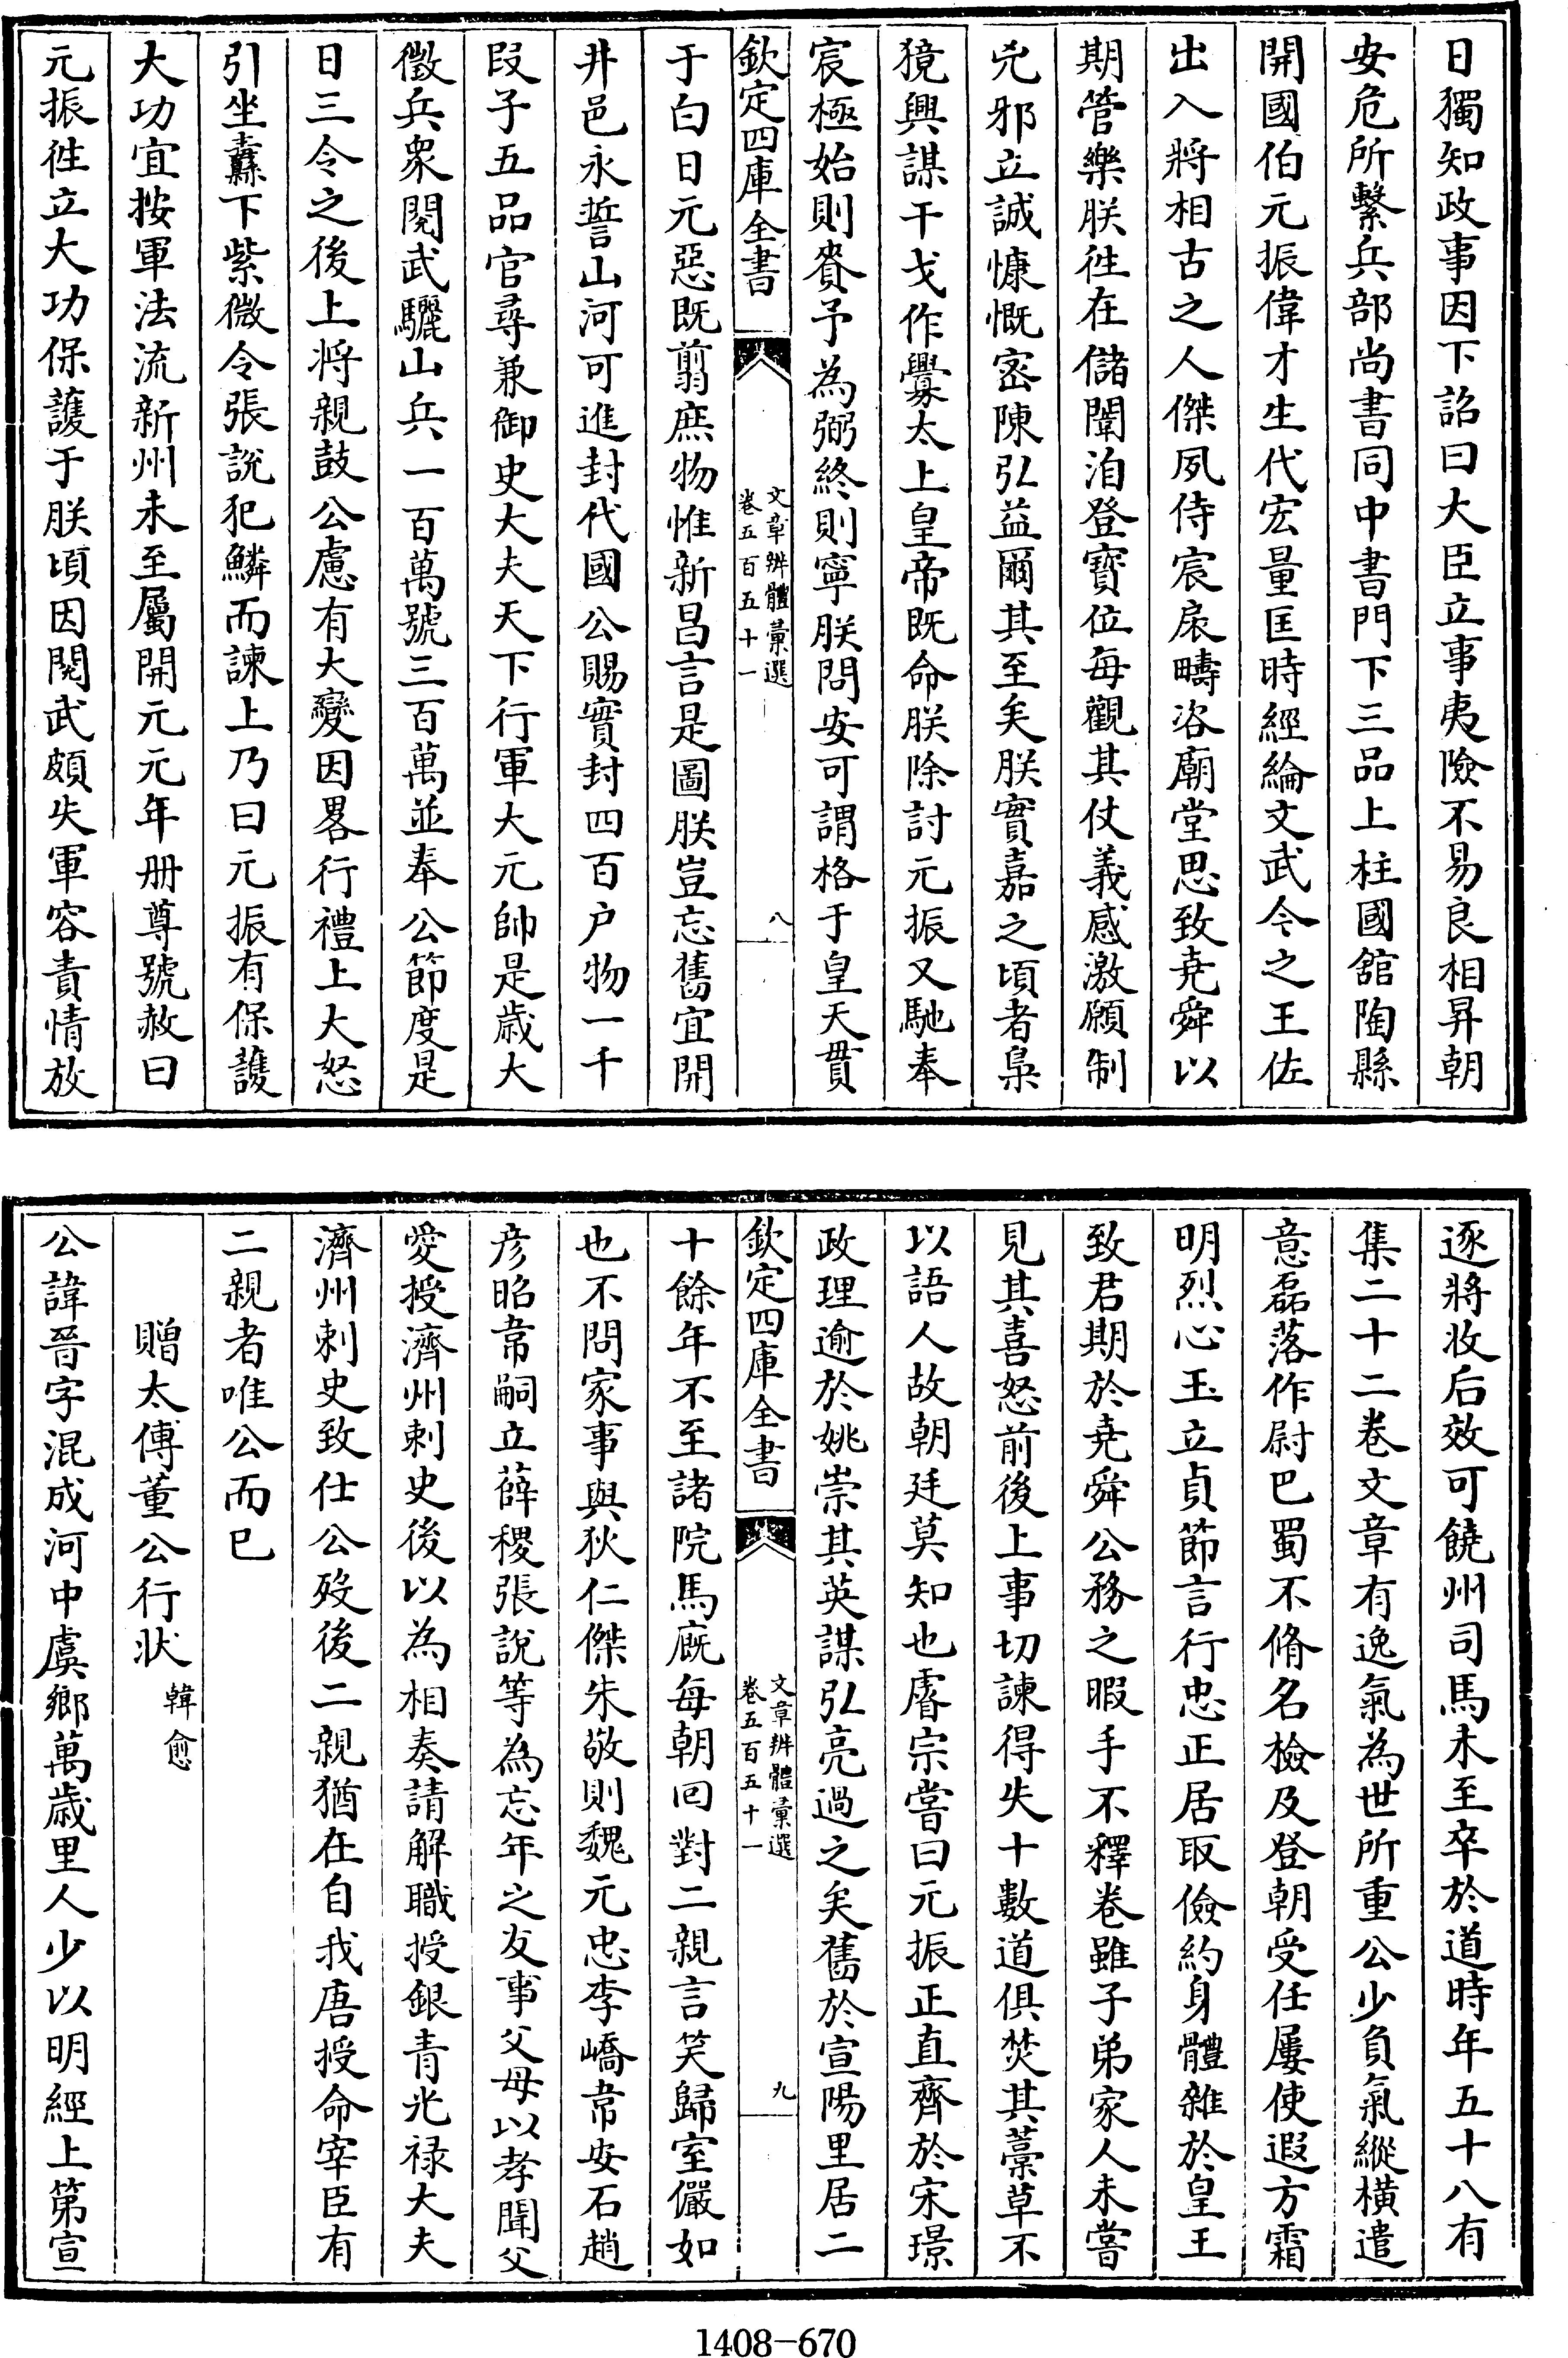 日獨知政事因下詔曰大臣立事夷險不易良相昇朝
安危所繫兵部尚書同中書門下三品上柱國舘陶縣
開國伯元振偉才生代宏量匡時經綸文武令之王佐
出入將相古之人傑夙侍宸扆疇咨廟堂思致堯舜以
期管樂朕徃在儲闈洎登寶位每觀其仗義感激願制
兇邪立誠慷慨密陳弘益爾其至矣朕實嘉之頃者梟
獍興謀干戈作釁太上皇帝既命朕除討元振又馳奉
宸極始則賚予為弼終則寧朕問安可謂格于皇天貫
欽定四庫全書
文章辨體彙選
卷五百五十一
八
于白日元惡既翦庶物惟新昌言是圖朕豈忘舊宜開
井邑永誓山河可進封代國公賜實封四百户物一千
段子五品官尋兼御史大夫天下行軍大元帥是歳大
徵兵衆閱武驪山兵一百萬號三百萬並奉公節度是
日三令之後上将親鼓公慮有大變因畧行禮上大怒
引坐纛下紫微令張說犯鱗而諫上乃曰元振有保護
大功宜按軍法流新州未至屬開元元年册尊號赦曰
元振徃立大功保護于朕頃因閱武頗失軍容責情放
逐將收后效可饒州司馬未至卒於道時年五十八有
集二十二卷文章有逸氣為世所重公少負氣縱橫遣
意磊落作尉巴蜀不脩名檢及登朝受任屢使遐方霜
明烈心玉立貞節言行忠正居取儉約身體雜於皇王
致君期於堯舜公務之暇手不釋卷雖子弟家人未嘗
見其喜怒前後上事切諫得失十數道俱焚其藁草不
以語人故朝廷莫知也睿宗嘗曰元振正直齊於宋璟
政理逾於姚崇其英謀弘亮過之矣舊於宣陽里居二
欽定四庫全書
文章辨體彙選
卷五百五十一
九
十餘年不至諸院馬廐每朝回對二親言笑歸室儼如
也不問家事與狄仁傑朱敬則魏元忠李嶠韋安石趙
彥昭韋嗣立薛稷張說等為忘年之友事父母以孝聞父
愛授濟州刺史後以為相奏請解職授銀青光祿大夫
濟州刺史致仕公歿後二親猶在自我唐授命宰臣有
二親者唯公而已
贈太傅董公行状 韓愈
公諱晉字混成河中虞鄉萬歳里人少以明經上第宣
1408-670